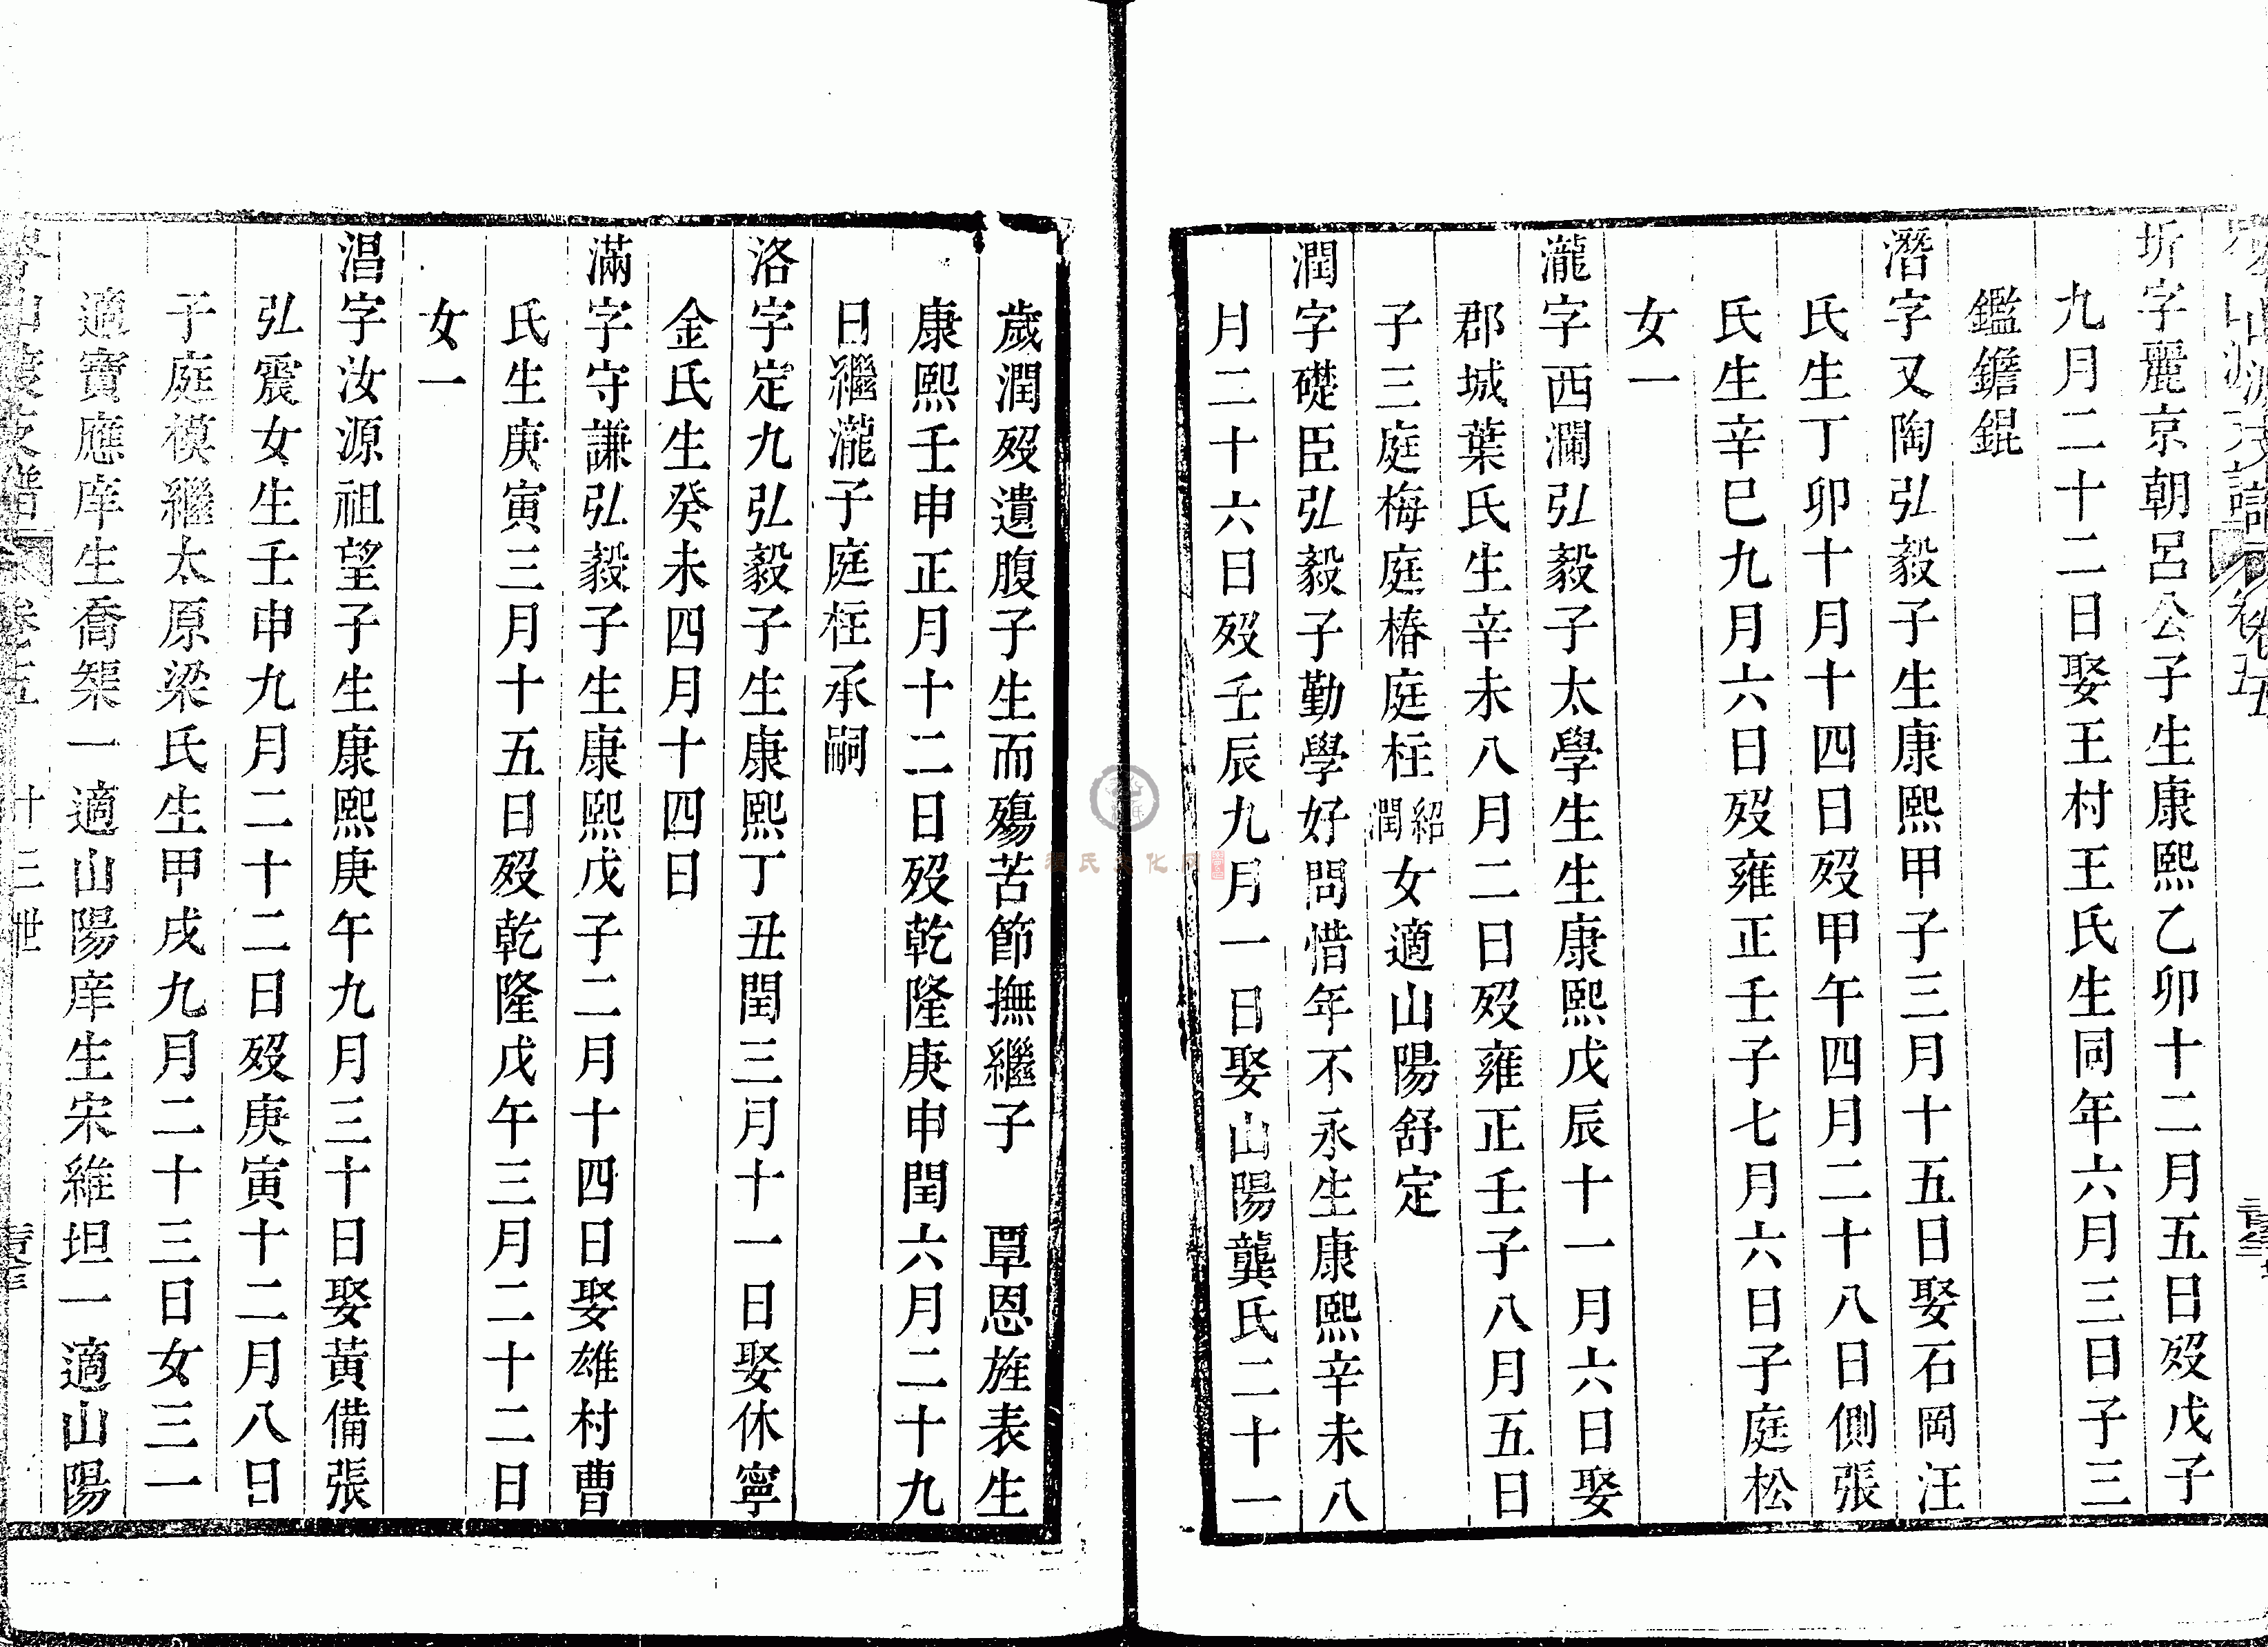 卷五
圻字麗京朝呂公子生康熙乙卯十二月五日歿戊子
九月二十二日娶王村王氏生同年六月三日子三
鑑鐈錕
潛字又陶弘毅子生康熙甲子三月十五日娶石岡汪
氏生丁卯十月十四日歿甲午四月二十八日側張
氏生辛巳九月六日歿雍正壬子七月六日子庭松
女一
瀧字西瀾弘毅子太學生生康熙戊辰十一月六日娶
郡城葉氏生辛未八月二日歿雍正壬子八月五日
子三庭梅庭椿庭柱紹潤女適山陽舒定
潤字礎臣弘毅子勤學好問惜年不永生康熙辛未八
月二十六日歿壬辰九月一日娶山陽龔氏二十一
歲潤歿遺腹子生而殤苦節撫繼子 覃恩旌表生
康熙壬申正月十二日歿乾隆庚申閏六月二十九
日繼瀧子庭柱承嗣
洛字定九弘毅子生康熙丁丑閏三月十一日娶休寧
金氏生癸未四月十四日
滿字守謙弘毅子生康熙戊子二月十四日娶雄村曹
氏生庚寅三月十五日歿乾隆戊午三月二十二日
女一
淐字汝源祖望子生康熙庚午九月三十日娶黃備張
弘震女生壬申九月二十二日歿庚寅十二月八日
子庭模繼太原梁氏生甲戌九月二十三日女三一
適寶應庠生喬榘一適山陽庠生宋維坦一適山陽
卷五 十三世